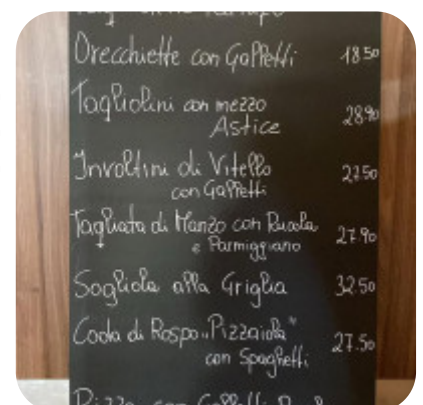 Orecchiette con Galletti 18.50
Tagliolini con mezzo
Astice 28.90
Involtini di Vitello 27.50
con Galletti
Tagliata di Manzo con Rucola
e Parmiggiano 27.90
Sogliola alla Griglia 32.50
Coda di Rospo „Pizzaiola“
con Spaghetti 27.50
Pizza con Galletti